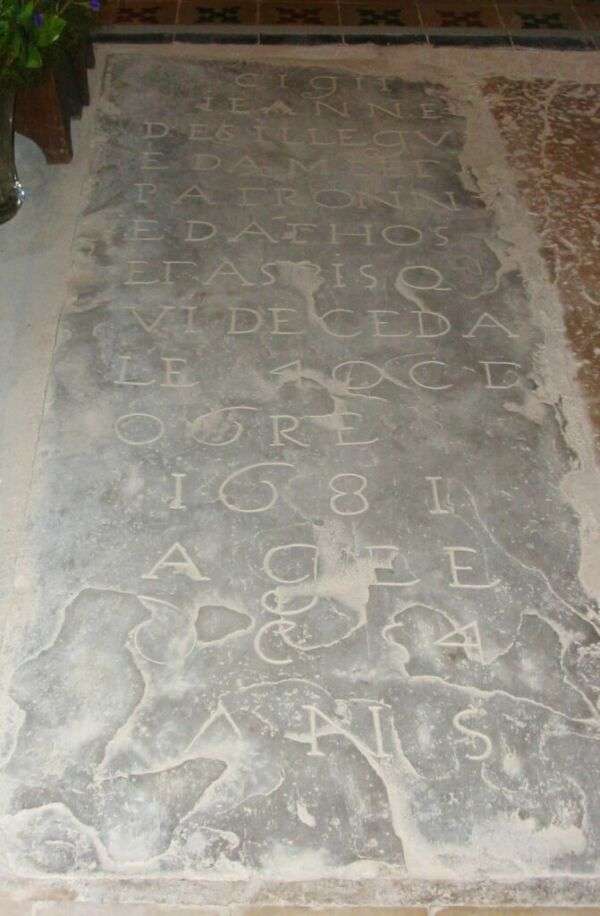 CI GIT
IEANNE
DESILLEGV
EDAMEET
PATRONN
EDATHOS
ETASSISQ
VIDECEDA
LE
OBRE
1681
AGEE
ANS